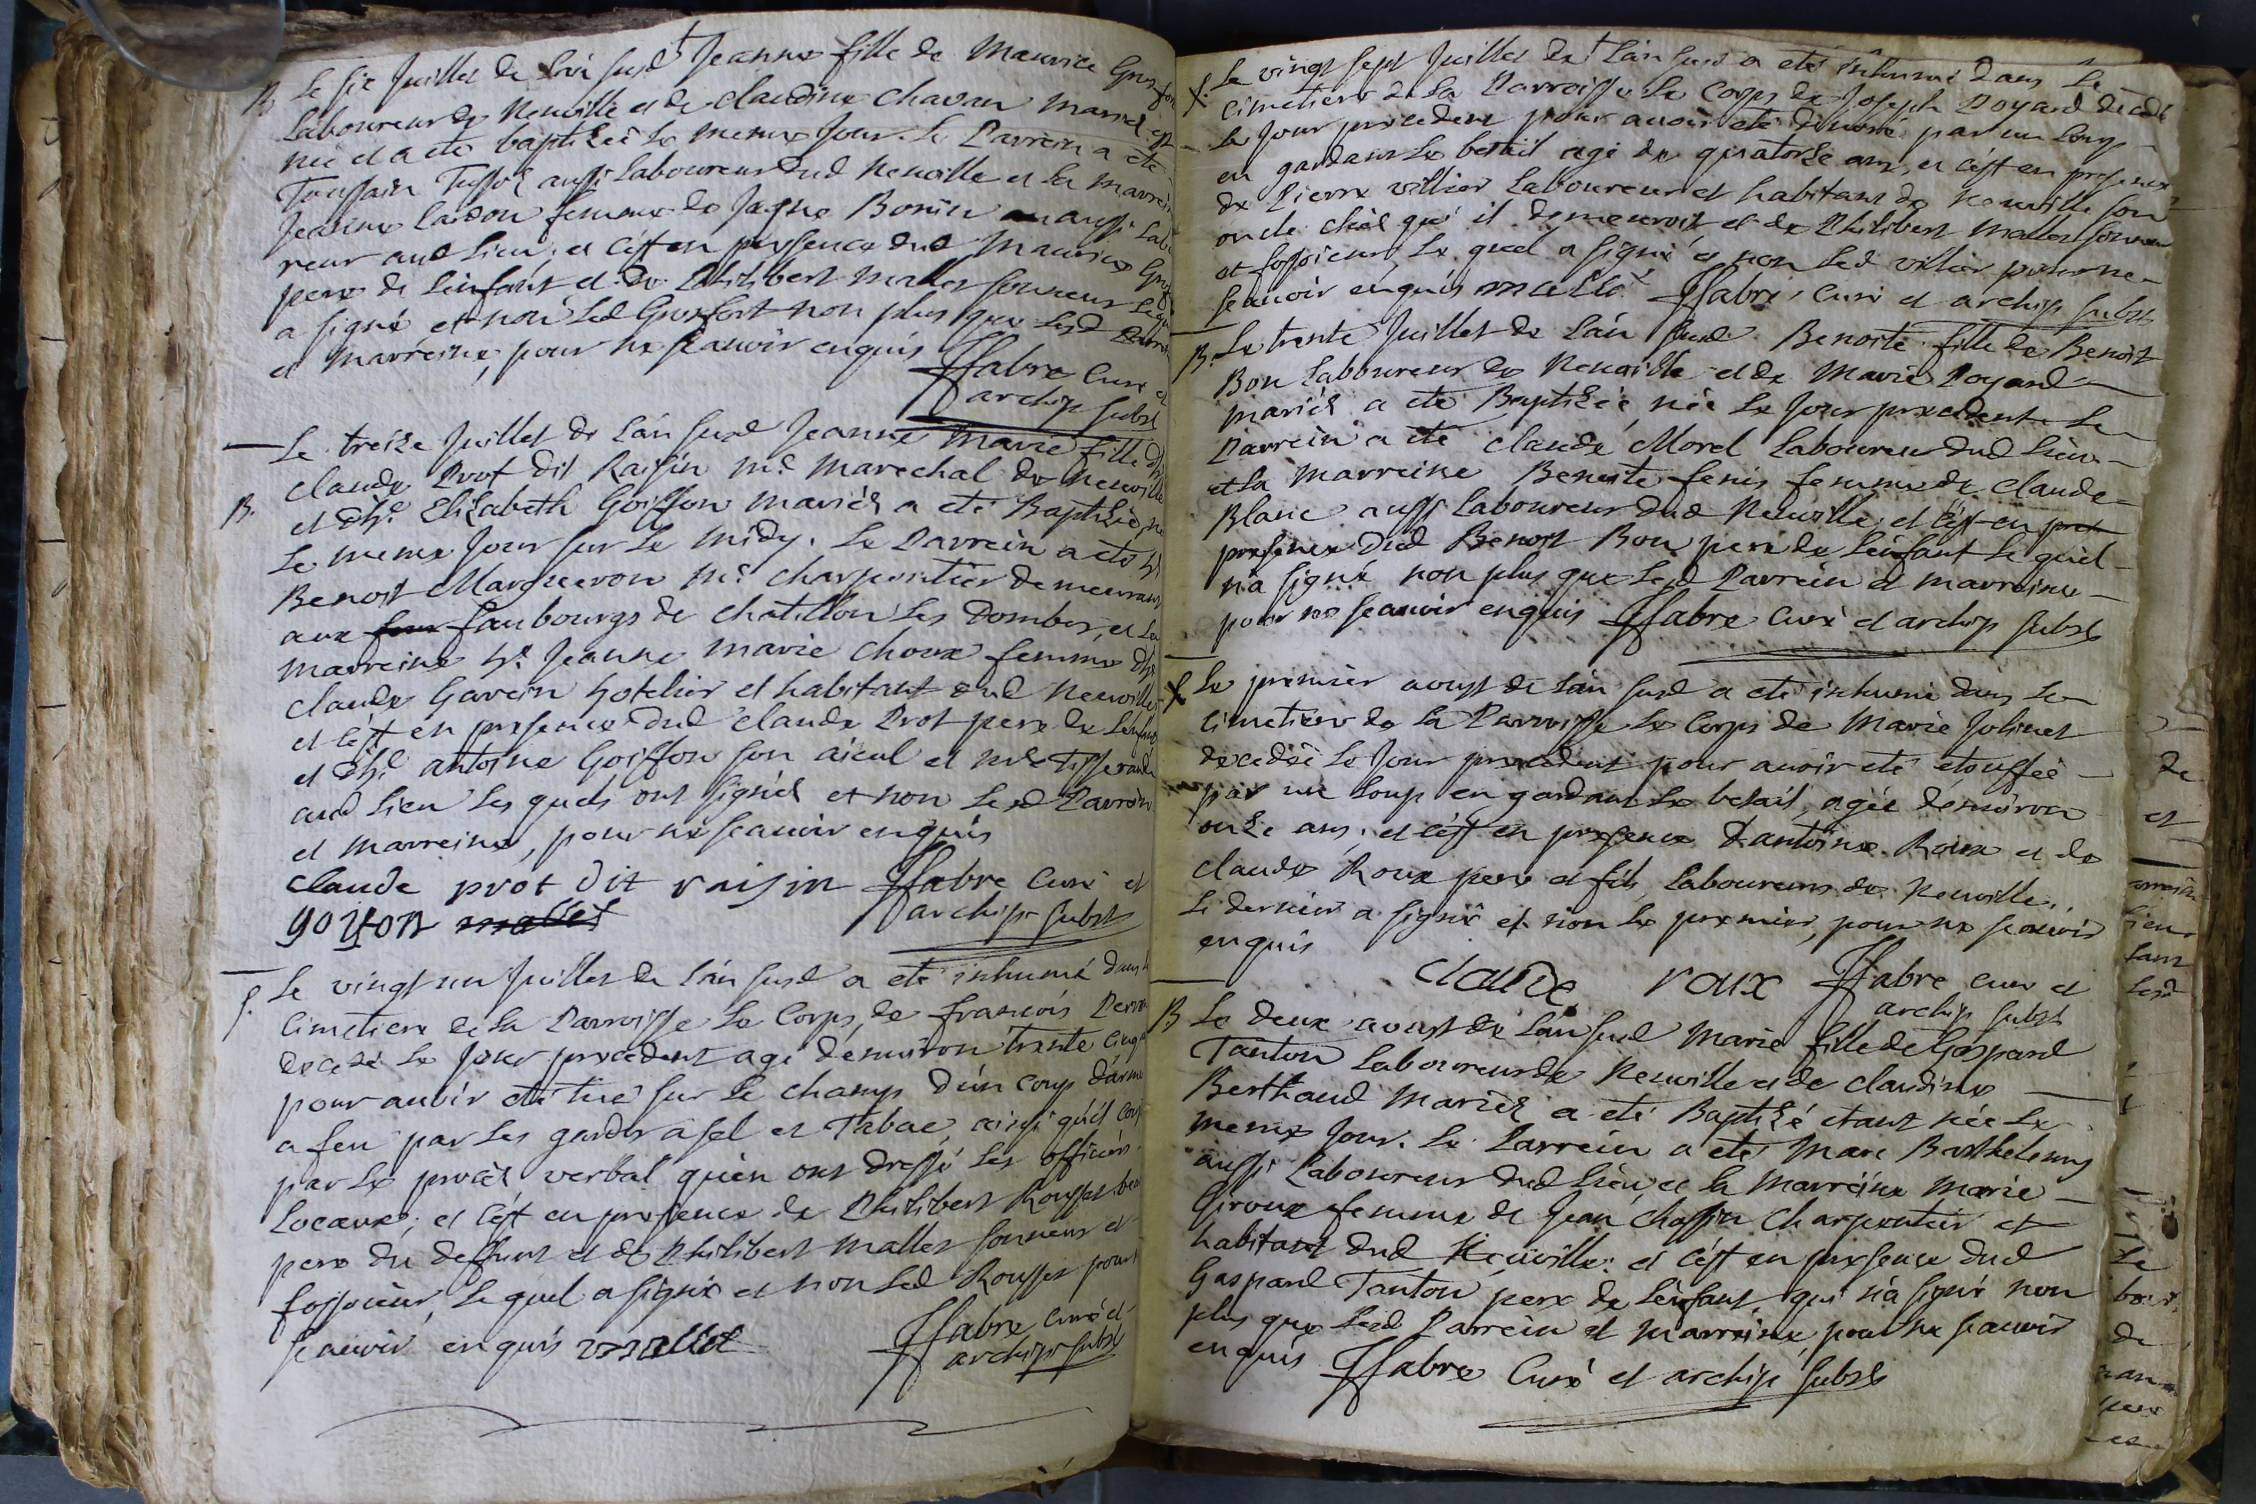 B Le six Juillet de l'an susd Jeanne fille de Maurice Gros
Laboureur de Neuville et de claudine chavan mariés est
née et a eté baptisée le meme Jour. Le Parrein a eté
Toussain Tissot aussi Laboureur dud Neuville et la marrei
Jeanne lardon femme de Jaque Bonin aussi Labou
reur aud Lieu, et c'est en presence dud Maurice Gros
pere de l'enfant et de Philibert mallet sonneur Lequ
a signé et non led Grosfort non plus que lesd Parrei
et marreine, pour ne scavoir enquis
ffabre Curé et
archip subst
B. Le treize Juillet de l'an susd Jeanne Marie fille d'h
claude Prot dit Raisin me marechal de Neuville
et d'he Elizabeth Goiffon mariés a eté Baptisée née
Le meme Jour sur le midy. Le Parrein a eté he
Benoit Margueron me charpentier demeurant
aux faubourgs de chatillon les Dombes, et la
marreine he Jeanne marie choux femme d'he
claude Gavein hotelier et habitant dud Neuville
et c'est en presence dud claude Prot pere de l'enfant
et d'he antoine Goiffon son aieul et me Tisserand
aud Lieu les quels ont signés et non lesd Parrein
et marreine, pour ne scavoir enquis
claude prot dit raisin ffabre Curé et
goyfon mallet archip subst
s. Le vingt un Juillet de l'an susd a eté inhumé dans le
Cimetiere de la Parroisse Le Corps de francois
decedé Le Jour precedent agé d'environ trente cinq
pour avoir eté tué sur Le champ d'un coup d'arme
a feu par les gardes a sel et Tabac, ainsi qu'il
par Le procès verbal qu'en ont dressé Les officiers
Locaux; et c'est en presence de Philibert Rousset beau
pere du deffunt et de Philibert mallet sonneur et
fossoieur, Le quel a signé et non led Rousset pour
scavoir enquis mallet ffabre Curé et
archip subst
s. Le vingt sept Juillet de l'an susd a eté inhumé dans Le
cimetiere de la Parroisse Le Corps de Joseph Poyard decedé
Le Jour precedent pour avoir eté devoré par un loup
en gardant Le betail agé de quatorze ans, et c'est en presence
de Pierre villier Laboureur et habitant de Neuville son
oncle chés qui il demeuroit, et de Philibert mallet sonneur
et fossoieur, Le quel a signé et non led villier pour ne
scavoir enquis mallet ffabre, Curé et archip subst
B. Le trente Juillet de l'an susd Benoite fille de Benoit
Bon Laboureur de Neuville et de Marie Poyard
mariés a eté Baptisée née Le Jour precedent Le
Parrein a eté claude Morel Laboureur dud Lieu
et la marreine Benoite fenis femme de claude
Blanc aussi Laboureur dud Neuville, et c'est en pret
presence dud Benoit Bon pere de l'enfant Le quel
n'a signé non plus que lesd Parrein et marreine
pour ne scavoir enquis ffabre Curé et archip subst
s. Le premier aoust de l'an susd a eté inhumé dans Le
cimetiere de la Parroisse Le Corps de Marie Jolinet
decedée Le Jour precedent pour avoir eté etouffée
par un loup en gardant Le betail, agée d'environ
onze ans, et c'est en presence d'antoine Roux et de
claude Roux pere et fils, Laboureurs de Neuville.
Le dernier a signé et non Le premier, pour ne scavoir
enquis
claude roux ffabre Curé et
archip subst
B Le deux aoust de l'an susd Marie fille de Gaspard
Tanton Laboureur de Neuville et de claudine
Berthaud Mariés a eté Baptisé etant née Le
meme Jour. Le Parrein a eté Marc Barthelemy
aussi Laboureur dud Lieu et la Marreine Marie
Giroux femme de Jean chassin charpentier et
habitant dud Neuville; et c'est en presence dud
Gaspard Tanton pere de l'enfant, qui n'a signé non
plus que lesd Parrein et Marreine, pour ne scavoir
enquis ffabre Curé et archip subst